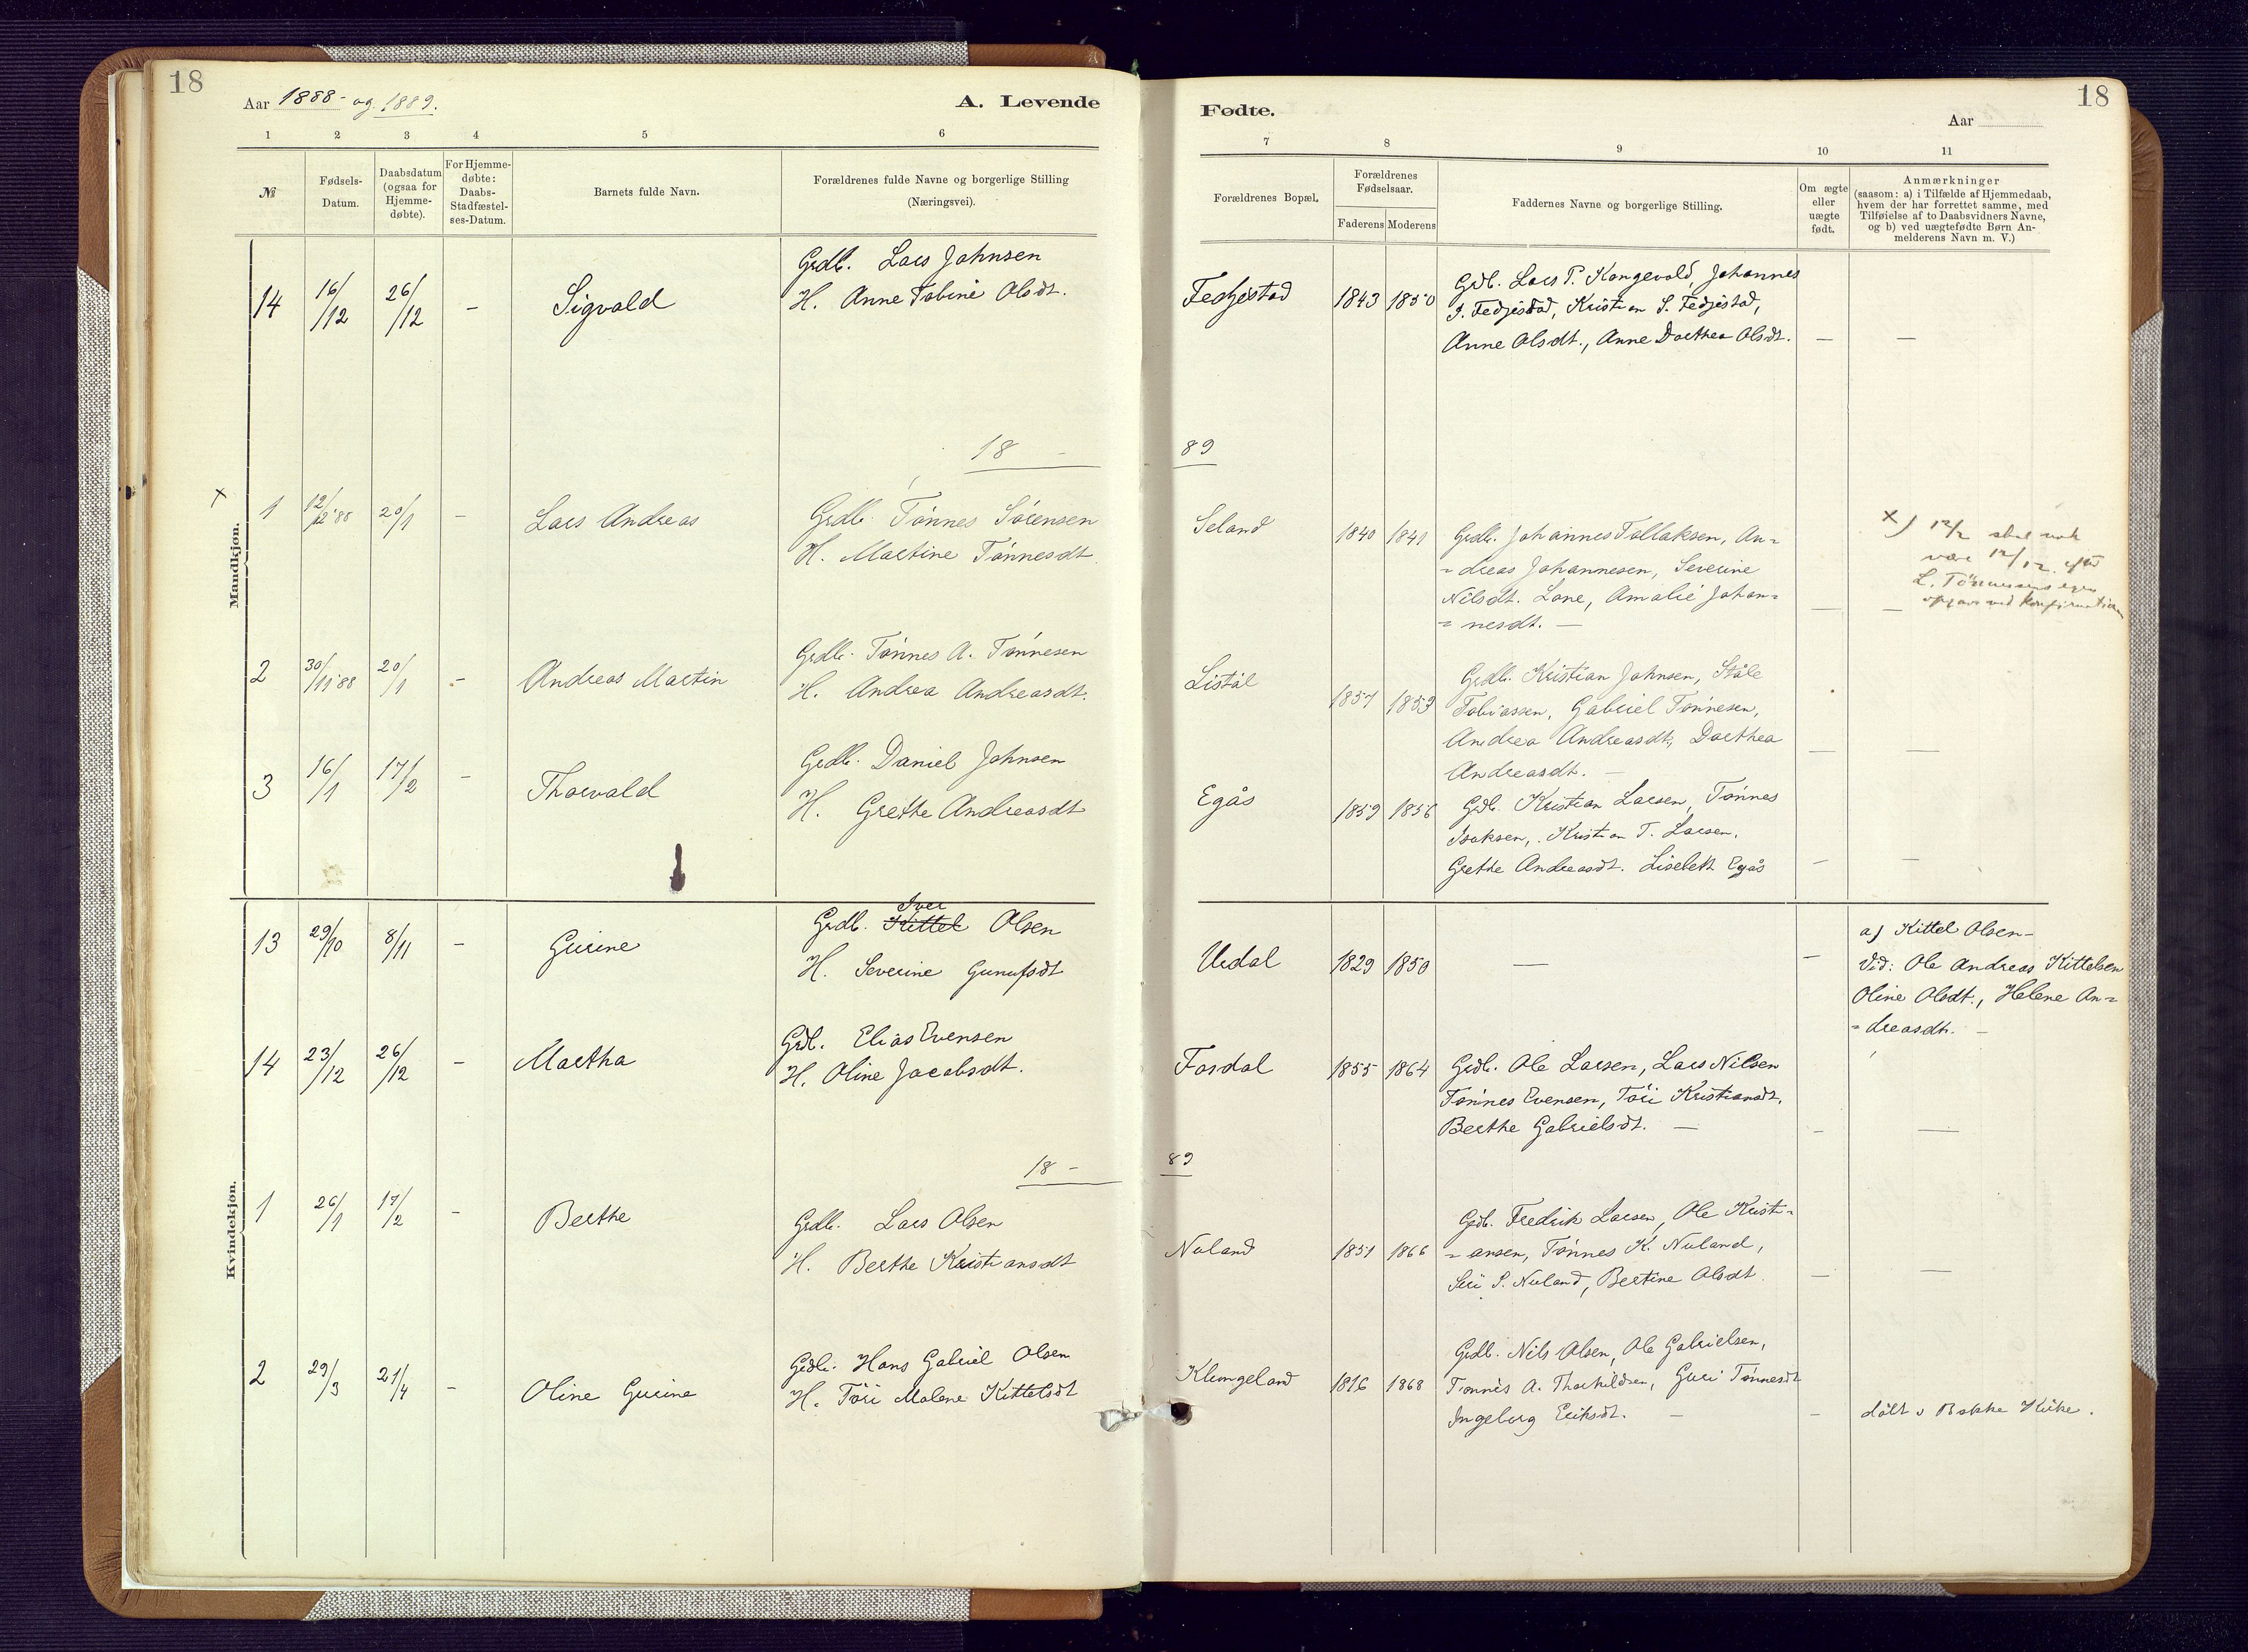 18
Aar 1888- og 1889.
A. Levende
1 2 3 4 5 6
№
Fødsels-
Datum.
Daabsdatum
(ogsaa for
Hjemme-
døbte).
For Hjemme-
døbte:
Daabs-
Stadfæstel-
ses-Datum.
Barnets fulde Navn.
Forældrenes fulde Navne og borgerlige Stilling
(Næringsvei).
Mandkjøn.
14 16/12 26/12 – Sigvald
Grdb. Lars Johnsen
H. Anne Tobine Olsdt.
18 –
x 1 12/12 '88 20/1 – Lars Andreas
Grdb. Tønnes Sørensen
H. Martine Tønnesdt.
2 30/11 '88 20/1 – Andreas Martin
Grdb. Tønnes A. Tønnesen
H. Andrea Andreasdt.
3 16/1 17/2 – Thorvald
Grdb. Daniel Johnsen
H. Grethe Andreasdt
Kvindekjøn.
13 29/10 8/11 – Gurine
Iver
Grdb. Kittel Olsen
H. Severine Gunufsdt
14 23/12 26/12 – Martha
Grdb. Elias Evensen
H. Oline Jacobsdt.
18 –
1 26/1 17/2 – Berthe
Grdb. Lars Olsen
H. Berthe Kristiansdt
2 29/3 21/4 – Oline Gurine
Grdb. Hans Gabriel Olsen
H. Töri Malene Kittelsdt
Fødte.
18
Aar
7 8 9 10 11
Forældrenes Bopæl.
Forældrenes
Fødselsaar.
Faderens Moderens
Faddernes Navne og borgerlige Stilling.
Om ægte
eller
uægte
født.
Anmærkninger
(saasom: a) i Tilfælde af Hjemmedaab,
hvem der har forrettet samme, med
Tilføielse af to Daabsvidners Navne,
og b) ved uægtefødte Børn An-
melderens Navn m. V.)
Fedjestad 1843 1850
Grdb. Lars P. Kongevold, Johannes
J. Fedjestad, Kristian S. Fedjestad,
Anne Olsdt., Anne Dorthea Olsdt. – –
89
Seland 1840 1841
Grdb. Johannes Tollaksen, An=
=dreas Johannesen, Severine
Nilsdt. Lone, Amalie Johan=
=nesdt. – – –
x) 12/2 skal nok
være 12/12 efter
L. Tönnesens egen
opgave ved Konfirmationen
Listøl 1857 1853
Grdb. Kristian Johnsen, Ståle
Tobiassen, Gabriel Tønnesen,
Andrea Andreasdt, Dorthea
Andreasdt. – – –
Egås 1859 1856
Grdb. Kristian Larsen, Tønnes
Isaksen, Kristian T. Larsen,
Grethe Andreasdt. Lisebett Egås – –
Urdal 1829 1850 – –
a) Kittel Olsen –
Vid: Ole Andreas Kittelsen
Oline Olsdt., Helene An=
=dreasdt. –
Fardal 1855 1864
Grdb. Ole Larsen, Lars Nilsen
Tønnes Evensen, Töri Kristiansdt.
Berthe Gabrielsdt. – – –
89
Nuland 1851 1866
Grdb. Fredrik Larsen, Ole Kristi=
=ansen, Tønnes K. Nuland,
Siri P. Nuland, Bertine Olsdt. – –
Klungeland 1868
Grdb. Nils Olsen, Ole Gabrielsen,
Tønnes A. Thorkildsen, Guri Tønnesdt
Ingeborg Eriksdt. – –
døbt i Bakke Kirke.